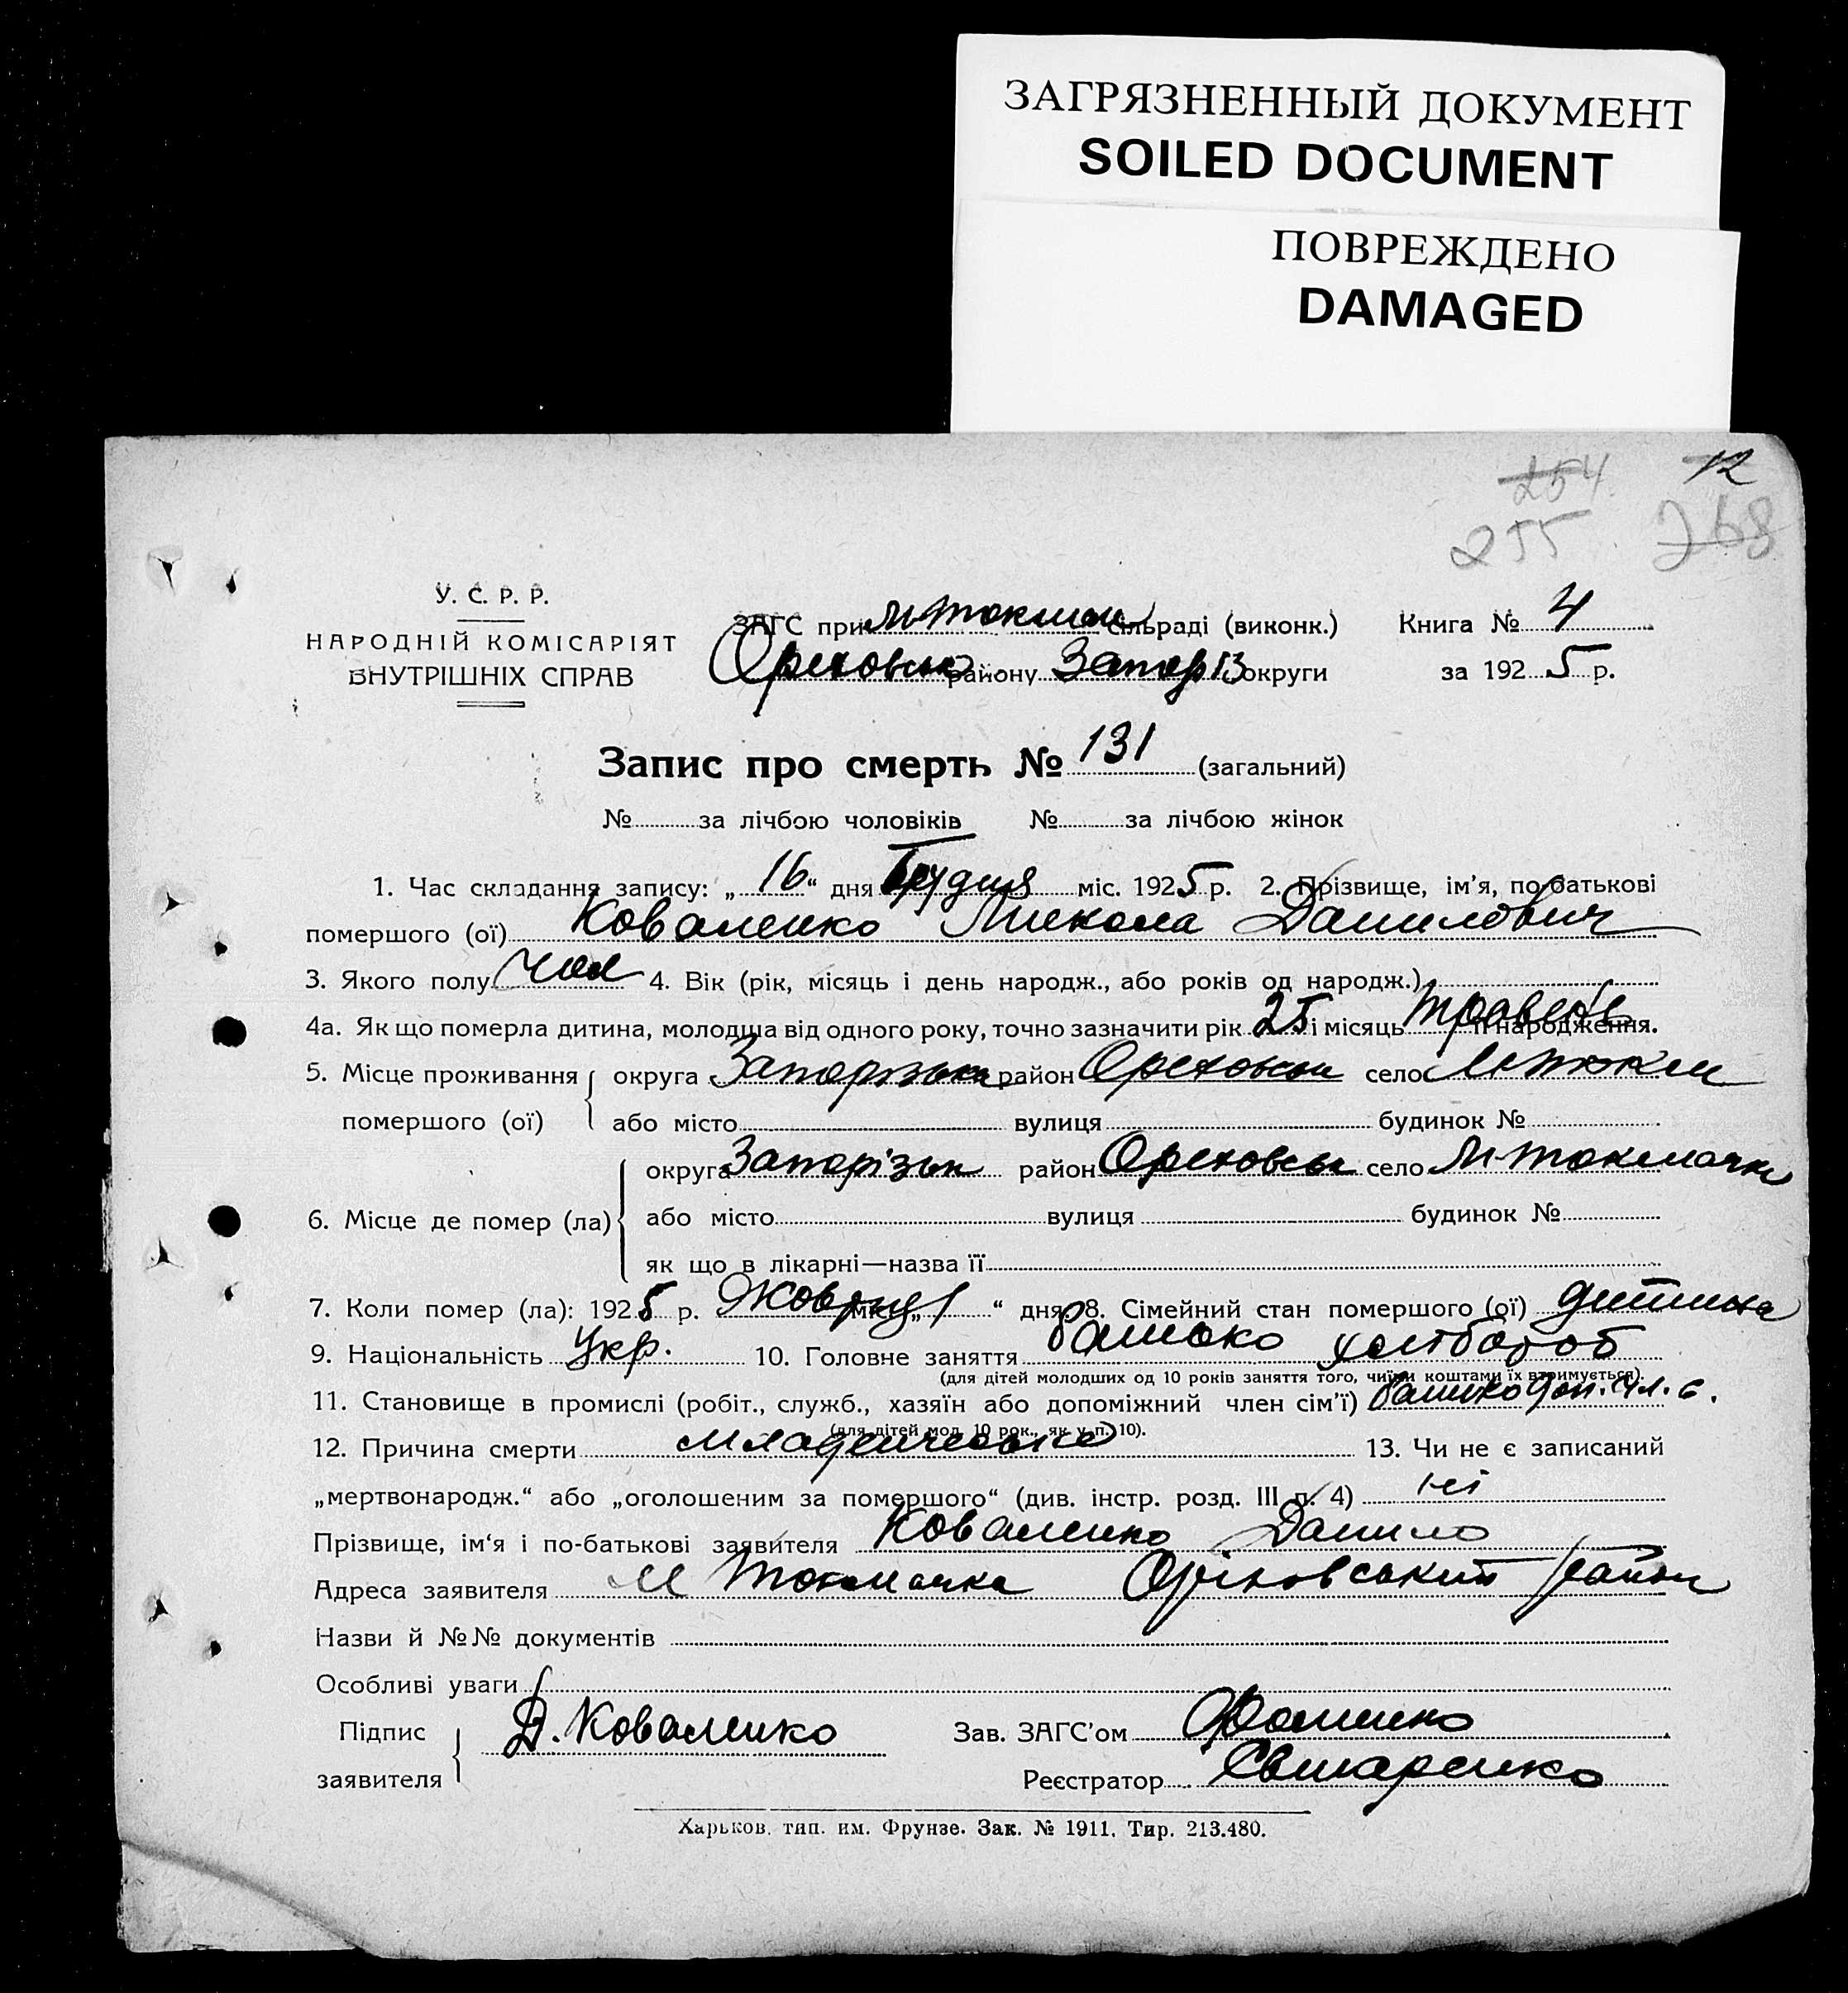 ЗАГРЯЗНЕННЫЙ ДОКУМЕНТ
SOILED DOCUMENT
ПОВРЕЖДЕНО
DAMAGED
254 12
255 268
У. С. Р. Р.
НАРОДНІЙ КОМІСАРІЯТ
ВНУТРІШНІХ СПРАВ
ЗАГС при М-Токмац сільраді (виконк.) Книга № 4
Ореховсько району Запоріз округи за 1925 р.
Запис про смерть № 131 (загальний)
№ за лічбою чоловіків № за лічбою жінок
1. Час складання запису: „16“ дня Грудня міс. 1925 р. 2. Прізвище, ім'я, по-батькові
помершого (ої) Коваленко Микола Данилович
3. Якого полу чол 4. Вік (рік, місяць і день народж., або років од народж.)
4а. Як що померла дитина, молодша від одного року, точно зазначити рік 25 і місяць травень її народження.
5. Місце проживання округа Запорізька район Ореховськ село М-Токм
помершого (ої) або місто вулиця будинок №
округа Запорізьк район Ореховськ село М-Токмачка
6. Місце де помер (ла) або місто вулиця будинок №
як що в лікарні—назва її
7. Коли помер (ла): 1925 р. Жовтня міс. „1“ дня 8. Сімейний стан помершого (ої) дитина
9. Національність Укр. 10. Головне заняття батько хлібороб
(для дітей молодших од 10 років заняття того, чиїми коштами їх втримується).
11. Становище в промислі (робіт., служб., хазяїн або допоміжний член сім'ї) батько доп. чл. с.
(для дітей мол. 10 рок., як у п. 10).
12. Причина смерти младенческа 13. Чи не є записаний
„мертвонародж.“ або „оголошеним за помершого“ (див. інстр. розд. III п. 4) ні
Прізвище, ім'я і по-батькові заявителя Коваленко Данило
Адреса заявителя М Токмачка Оріховський район
Назви й №№ документів
Особливі уваги
Підпис заявителя Д. Коваленко Зав. ЗАГС'ом
Реєстратор
Харьков, тип. им. Фрунзе. Зак. № 1911. Тир. 213.480.